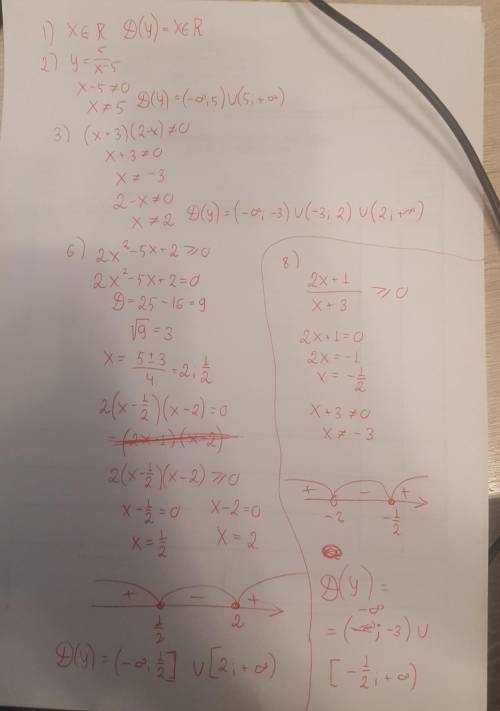 1) x∈R D(y)=x∈R
2) y=5/(x-5)
x-5≠0
x≠5 D(y)=(-∞;5)∪(5;+∞)
3) (x+3)(2-x)≠0
x+3≠0
x≠-3
2-x≠0
x≠2 D(y)=(-∞;-3)∪(-3;2)∪(2;+∞)
6) 2x²-5x+2≥0
2x²-5x+2=0
D=25-16=9
√9=3
x=(5±3)/4=2;1/2
2(x-1/2)(x-2)=0
=(2x-1)(x-2)
2(x-1/2)(x-2)≥0
x-1/2=0 x-2=0
x=1/2 x=2
+ - +
1/2 2
D(y)=(-∞;1/2]∪[2;+∞)
8)
(2x+1)/(x+3)≥0
2x+1=0
2x=-1
x=-1/2
x+3≠0
x≠-3
+ - +
-3 -1/2
D(y)=
=(-∞;-3)∪
[-1/2;+∞)